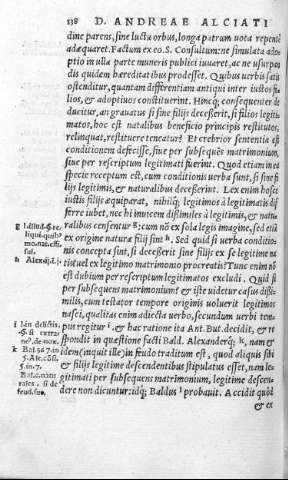 138 D. ANDREAE ALCIATI
dine parens, sine luctu orbus, longa patrum uota repentè
adæquaret. Factum ex eo. S. Consultum: ne simulata ado-
ptio in ulla parte muneris publici iuuaret, ac ne usurpan
dis quidem hæreditatibus prodesset. Quibus uerbis satis
ostenditur, quantam differentiam antiqui inter iustos fi-
lios, & adoptiuos constituerint. Hincq́; consequenter de
ducitur, an grauatus si sine filijs decesserit, si filios legiti-
matos, hoc est natalibus beneficio principis restitutos,
relinquat, restituere teneatur? Et crebrior sententia est
conditionem defecisse, siue per subsequēs matrimonium,
siue per rescriptum legitimati fuerint. Quod etiam in ea
specie receptum est, cum conditionis uerba sunt, si sine fi
lijs legitimis, & naturalibus decesserint. Lex enim hosce
iustis filijs æquiparat, nihilq́; legitimos à legitimatis dif
ferre iubet, nec hi inuicem dissimiles à legitimis, & natu-
ralibus censentur g: cum nō ex sola legis imagine, sed etiā
ex origine naturæ filij sint h. Sed quid si uerba conditio-
nis concepta sint, si decesserit sine filijs ex se legitimè na
tis uel ex legitimo matrimonio procreatis? Tunc enim nō
est dubium per rescriptum legitimatos excludi. Quid si
per subsequens matrimonium? & iste uidetur casus dissi-
milis, cum testator tempore originis uoluerit legitimos
nasci, qualitas enim adiecta uerbo, secundum uerbi tem-
pus regitur i. & hac ratione ita Ant. But. decidit, & re
spondit in quæstione facti Bald. Alexanderq́; k, nam &
idem (inquit ille) in feudo traditum est, quod aliquis sibi
& filijs legitimè descendentibus stipulatus esset, nam le-
gitimati per subsequens matrimonium, legitimè descen-
dere non dicuntur: idq́; Baldus l probauit. Accidit quòd
& ex
h Alex.
i l. in delictis.
§. si extra-
ne⁹. de nox.
k Bal. 367. in
5. Ale. cōsi.
5. in. 7.